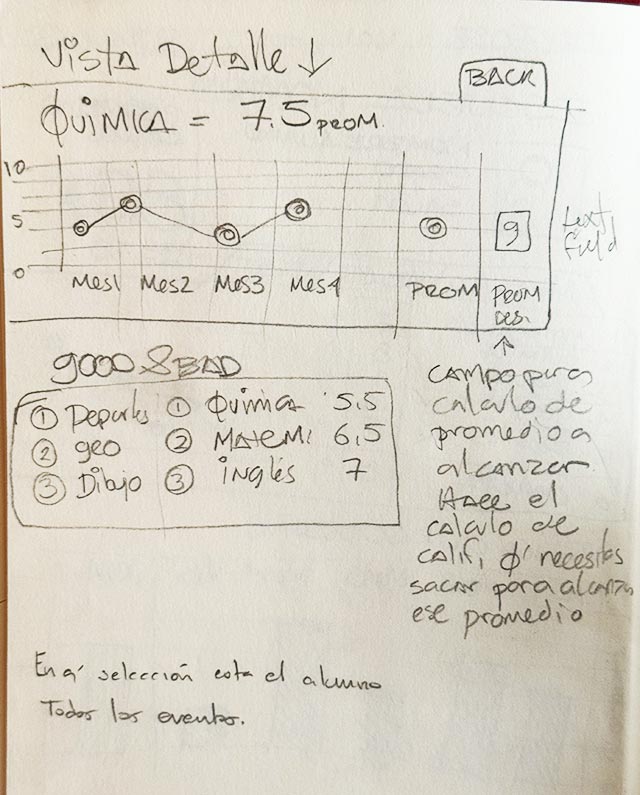 Vista Detalle ↓
BACK
QUIMICA = 7.5 PROM.
10
5
0
Mes1 Mes2 Mes3 Mes4 PROM
9
PROM
DES.
text
field
GOOD & BAD
① Deportes ① Quimica 5.5
② geo ② MATEM. 6,5
③ Dibujo ③ inglés 7
↑
CAMPO para
calculo de
promedio a
alcanzar
HACE el
calculo de
calif, q' necesitas
sacar para alcanzar
ese promedio
En q' selección esta el alumno
Todos los eventos.